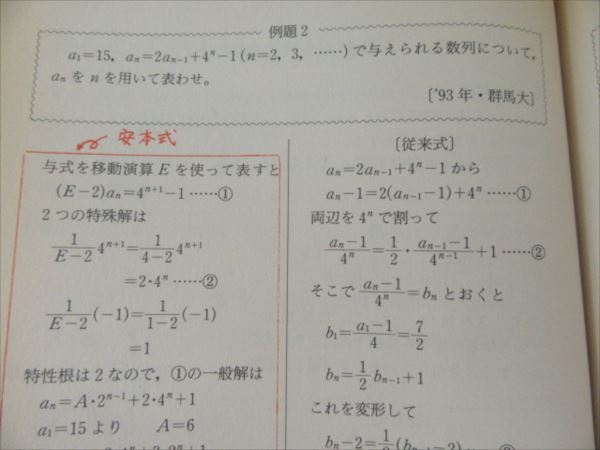 例題2
a₁=15, aₙ=2aₙ₋₁+4ⁿ−1 (n=2, 3, ……) で与えられる数列について,
aₙ を n を用いて表わせ。
〔'93年・群馬大〕
安本式
与式を移動演算 E を使って表すと
(E−2)aₙ=4ⁿ⁺¹−1 ……①
2つの特殊解は
1/(E−2) 4ⁿ⁺¹=1/(4−2) 4ⁿ⁺¹
=2·4ⁿ ……②
1/(E−2) (−1)=1/(1−2) (−1)
=1
特性根は2なので, ①の一般解は
aₙ=A·2ⁿ⁻¹+2·4ⁿ+1
a₁=15 より A=6
〔従来式〕
aₙ=2aₙ₋₁+4ⁿ−1 から
aₙ−1=2(aₙ₋₁−1)+4ⁿ ……①
両辺を 4ⁿ で割って
(aₙ−1)/4ⁿ=1/2·(aₙ₋₁−1)/4ⁿ⁻¹+1 ……②
そこで (aₙ−1)/4ⁿ=bₙ とおくと
b₁=(a₁−1)/4=7/2
bₙ=1/2 bₙ₋₁+1
これを変形して